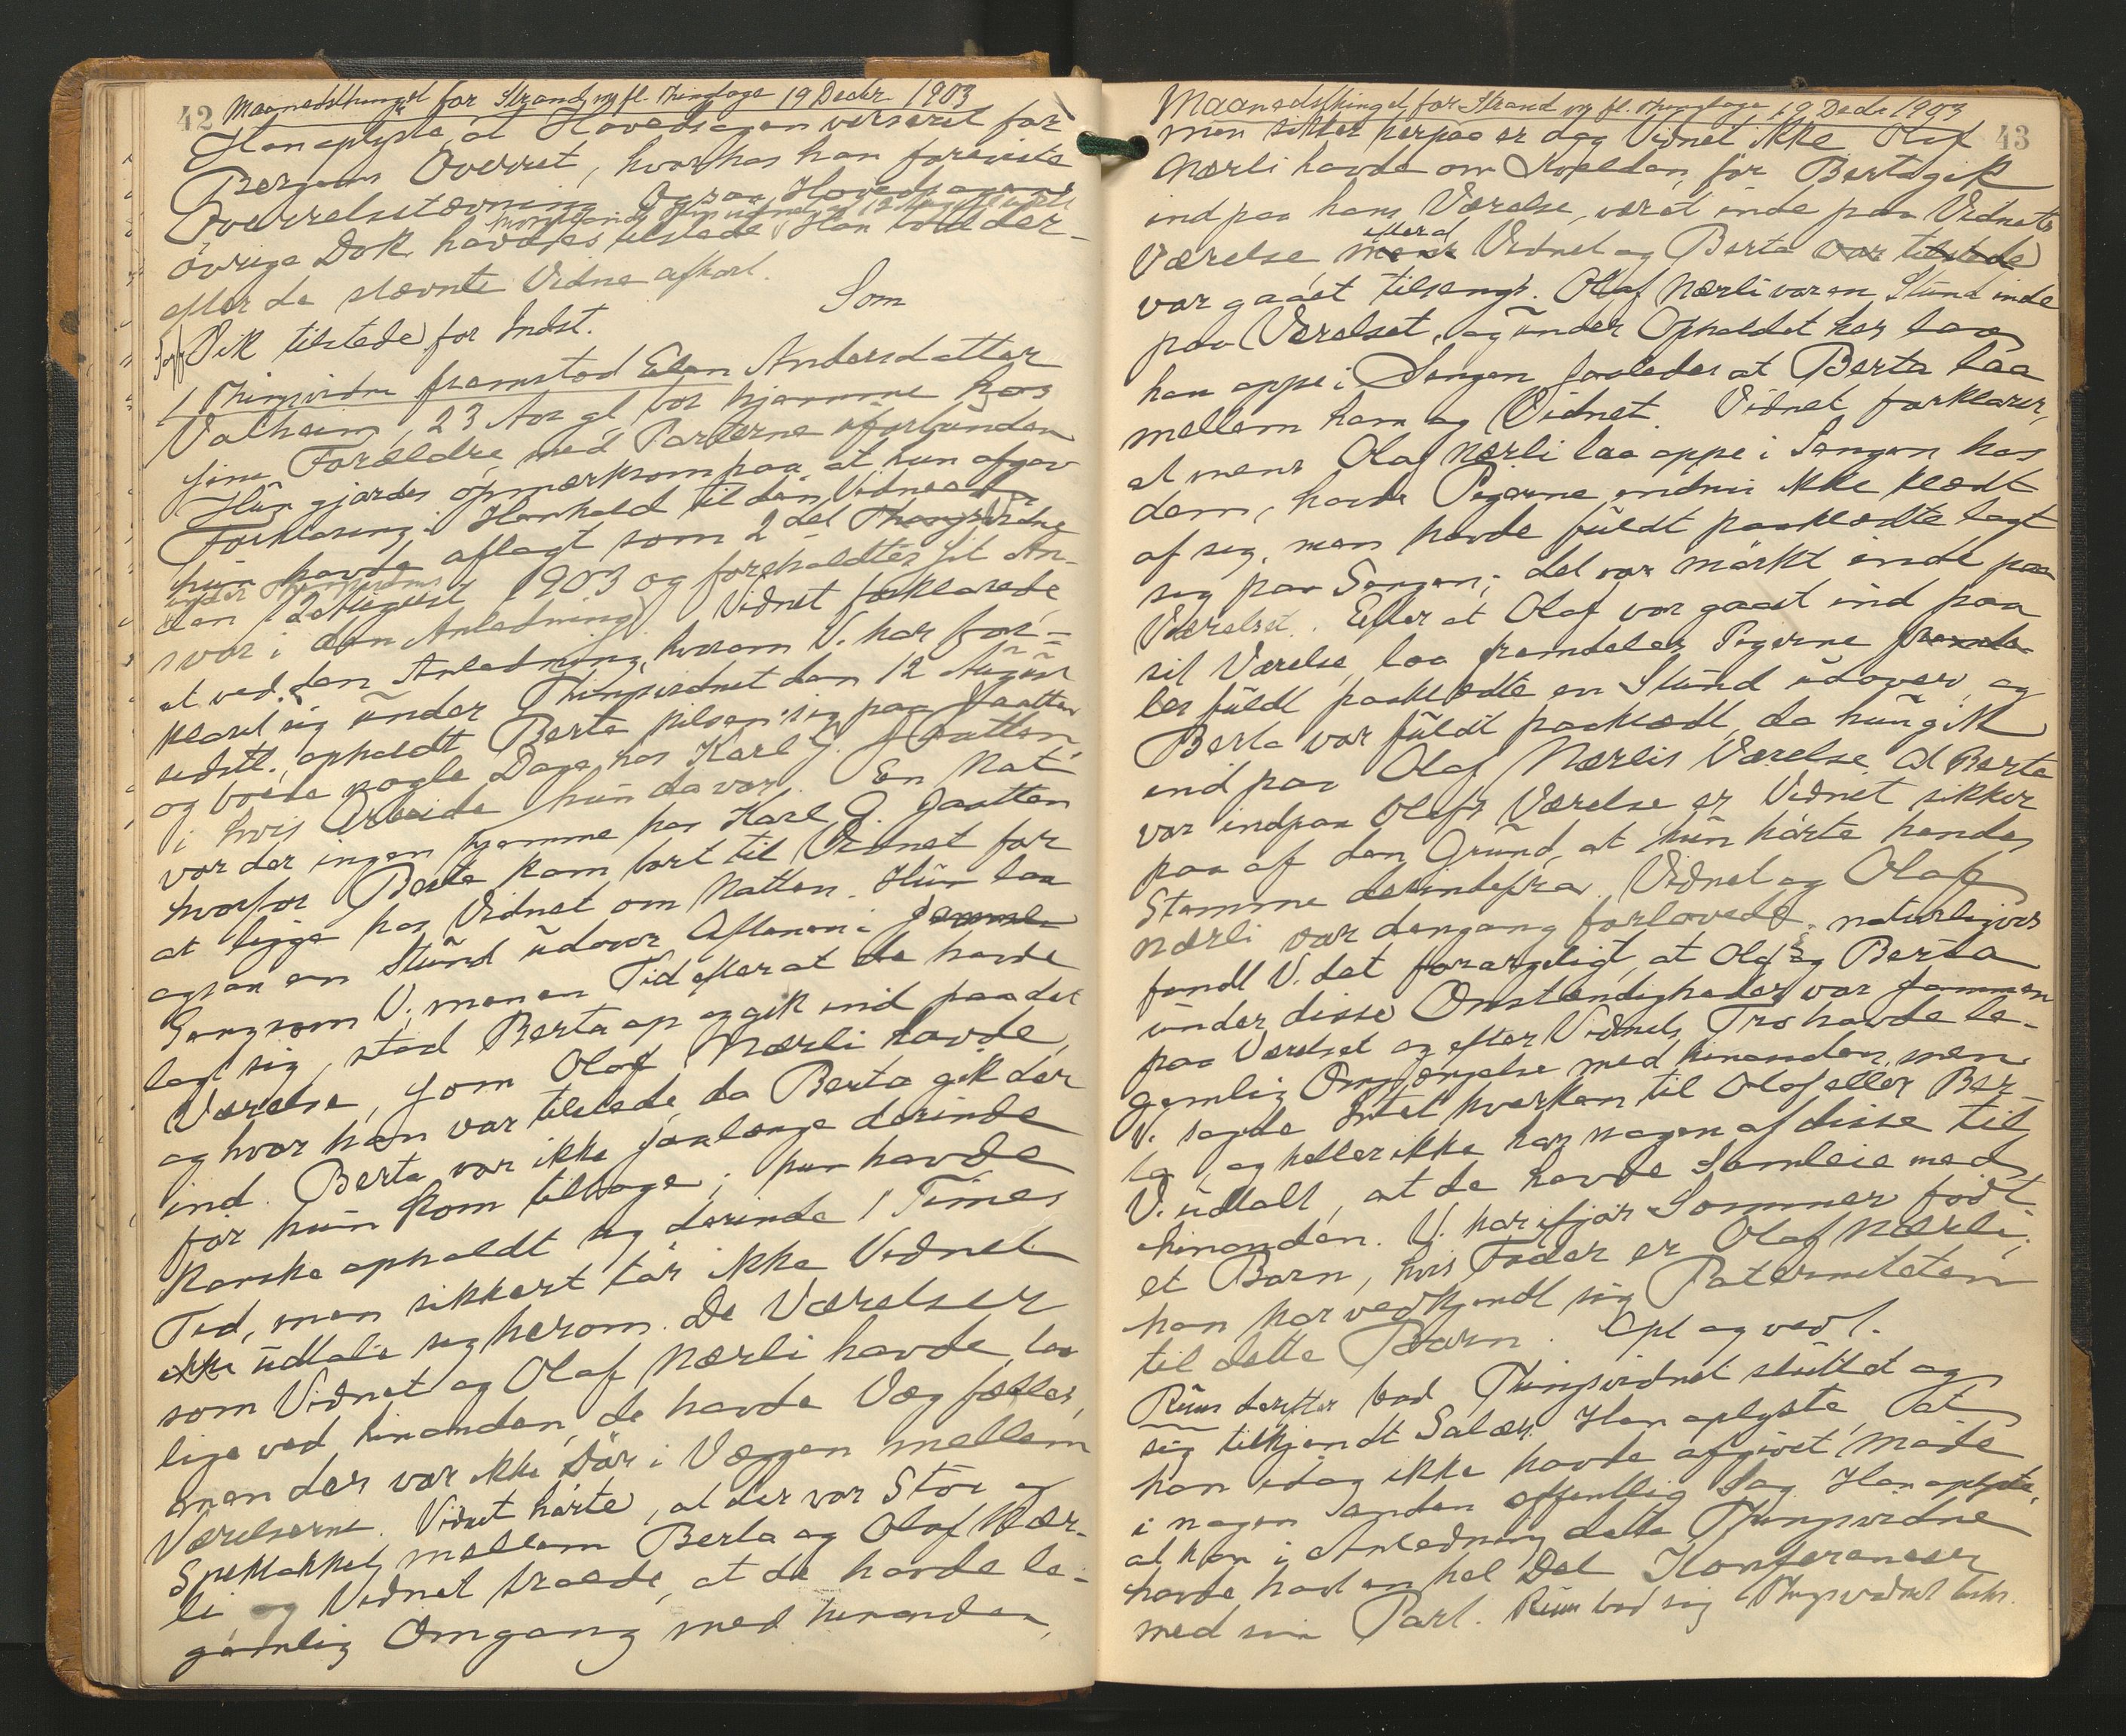 42 Maanedsthinget for Strand m fl. Thinglage 19 Decbr 1903
Han oplyste, at Hovedsagen verserer for
Bergens Overret, hvorhos han foreviste
Overretsstævning. Ogsaa Hovedsagens
övrige Dok. havdes tilstede. Han vilde der-
efter de stævnte Vidne afhørt.
Som
Vik tilstede for Indst.
1 Thingvidne framstod Elen Andersdatter
Valheim, 23 Aar gl, bor hjemme hos
sine Forældre, med Parterne uforbunden
Hun gjordes opmærksom paa, at hun afgav
Forklaring i Henhold til den Vidneed
hun havde aflagt som 2det Thingsvidne
den 12 August 1903 og foreholdtes sit An-
svar i den Anledning. Vidnet forklarede
at ved den Anledning, hvorom V. har for-
klaret sig under Thingsvidnet den 12 August
sidstl., opholdt Berta sig paa Jaatten
og boede nogle Dage hos Karl G. Jaatten,
i hvis Arbeide hun da var. En Nat
var der ingen hjemme hos Karl G. Jaatten
hvorfor Berta kom bort til Vidnet for
at ligge hos Vidnet om Natten. Hun laa
ogsaa en Stund udover Aftenen i samme
Seng som V., men en Tid efter at de havde
lagt sig, stod Berta op og gik ind paa det
Værelse, som Olaf Nærli havde,
og hvor han var tilstede, da Berta gik der
ind. Berta var ikke saalænge derinde
før hun kom tilbage; hun havde
kanske opholdt sig derinde 1 Times
Tid, men sikkert tör ikke Vidnet
ikke udtale sig herom. De Værelser
som Vidnet og Olaf Nærli havde, laa
lige ved hinanden, de havde Væg fælles,
men der var ikke Dör i Væggen mellem
Værelserne. Vidnet hørte, at der var Stöi og
Spektakkel mellem Berta og Olaf Nær-
li og Vidnet troede, at de havde le-
gemlig Omgang med hinanden,
Maanedsthinget for Strand m fl. Thinglage 19 Decbr 1903 43
men sikker herpaa er dog Vidnet ikke. Olaf
Nærli havde om Kvelden, før Berta gik
ind paa hans Værelse, været inde paa Vidnets
efterat
Værelse mens Vidnet og Berta var tilstede
var gaaet tilsengs. Olaf Nærli var en Stund inde
paa Værelset, og under Opholdet her laa
han oppe i Sengen saaledes at Berta laa
mellem ham og Vidnet. Vidnet forklarer,
at mens Olaf Nærli laa oppe i Sengen hos
dem, havde Pigerne endnu ikke klædt
af sig, men havde fuldt paaklædte lagt
sig paa Sengen; det var mörkt inde paa
Værelset. Efter at Olaf var gaaet ind paa
sit Værelse, laa fremdeles Pigerne fremde-
les fuldt paaklædte en Stund udover, og
Berta var fuldt paaklædt, da hun gik
ind paa Olaf Nærlis Værelse. At Berta
var indpaa Olafs Værelse, er Vidnet sikker
paa af den Grund, at hun hørte hendes
Stemme derindefra. Vidnet og Olaf
Nærli var dengang forlovede; naturligvis
fandt V. det forargeligt, at Olaf og Berta
under disse Omstændigheder var sammen
paa Værelset og efter Vidnets Tro havde le-
gemlig Omgjængelse med hinanden, men
V. sagde Intet hverken til Olaf eller Ber-
ta, og heller ikke har nogen af disse til
V. udtalt, at de havde Samleie med
hinanden. V. har ifjor Sommer født
et Barn, hvis Fader er Olaf Nærli;
han har vedkjendt sig Paterniteten
til dette Barn. Opl og vedt.
Riim derefter bad Thingsvidnet sluttet og
sig tilkjendt Salær. Han oplyste, at
han idag ikke havde afgivet Møde
i nogen anden offentlig Sag. Han oplyste,
at han i Anledning dette Thingsvidne
havde havt en hel Del Konferancer
med sin Part. Riim bad sig Thingsvidnet besk.